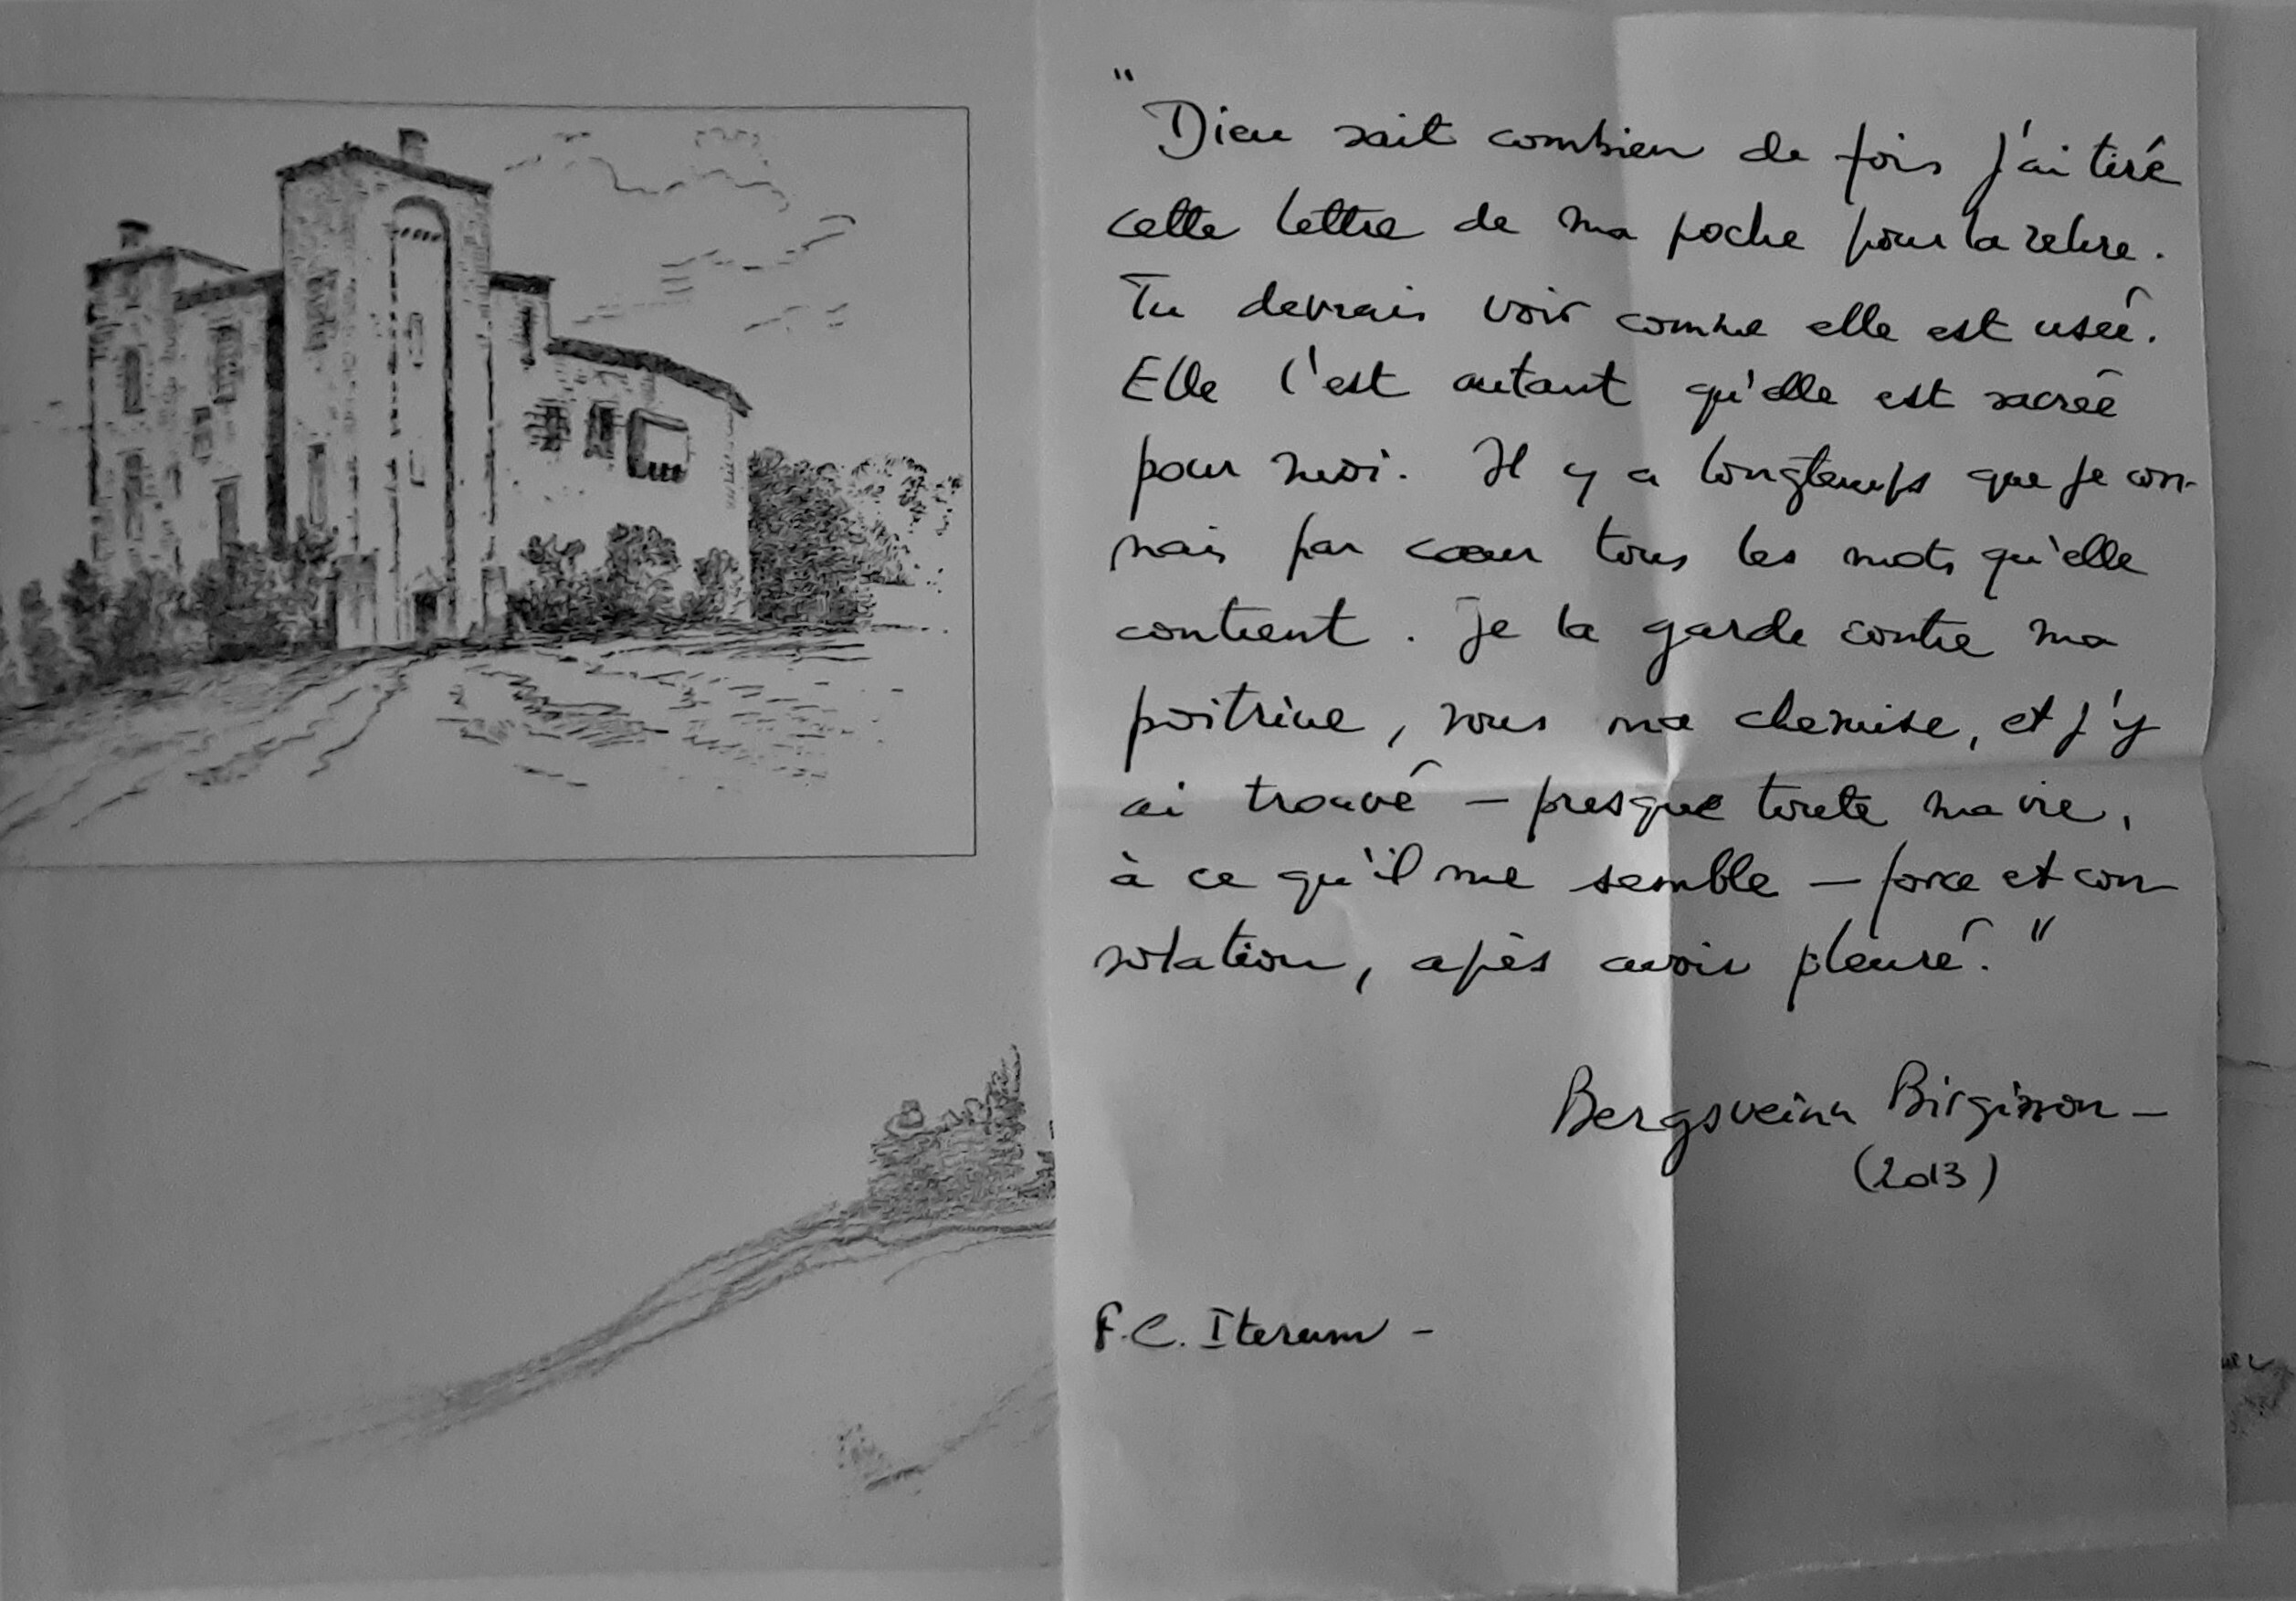 "
Dieu sait combien de fois j'ai tiré
cette lettre de ma poche pour la relire.
Tu devrais voir comme elle est usée.
Elle l'est autant qu'elle est sacrée
pour moi. Il y a longtemps que je con-
nais par coeur tous les mots qu'elle
contient. Je la garde contre ma
poitrine, sous ma chemise, et j'y
ai trouvé – presque toute ma vie,
à ce qu'il me semble – force et con-
solation, après avoir pleuré."
Bergsveinn Birgisson –
(2013)
F.C. Iterum –